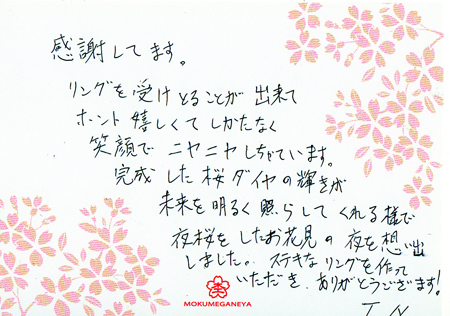 感謝してます。
リングを受けとることが出来て
ホント嬉しくてしかたなく
笑顔でニヤニヤしちゃています。
完成した桜ダイヤの輝きが
未来を明るく照らしてくれる様で
夜桜をしたお花見の夜を想い出
しました。ステキなリングを作って
いただき、ありがとうございます!
T.N
MOKUMEGANEYA